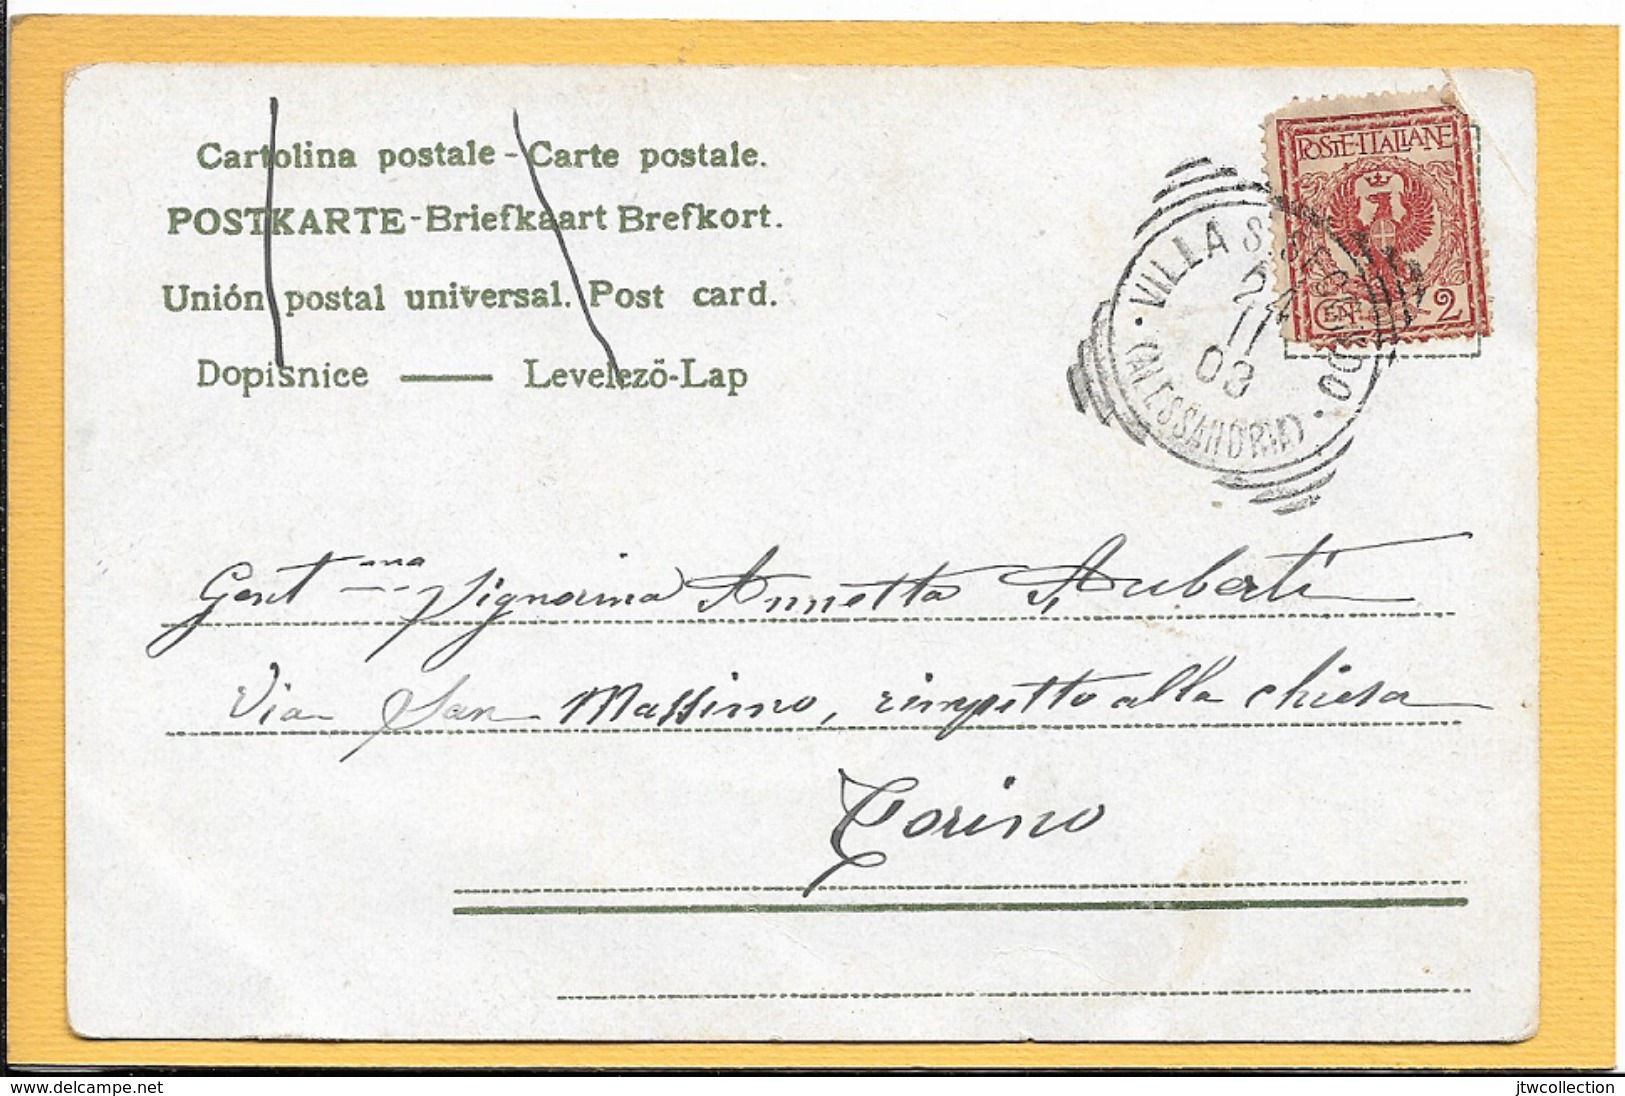 Cartolina postale - Carte postale.
POSTKARTE - Briefkaart Brefkort.
Unión postal universal. Post card.
Dopisnice — Levelező-Lap
POSTE·ITALIANE
CENT. 2
VILLA S. SECONDO
24
11
03
(ALESSANDRIA)
Gent ma Signorina Annetta Auberti
Via San Massimo, rimpetto alla chiesa
Torino
www.delcampe.net
jtwcollection